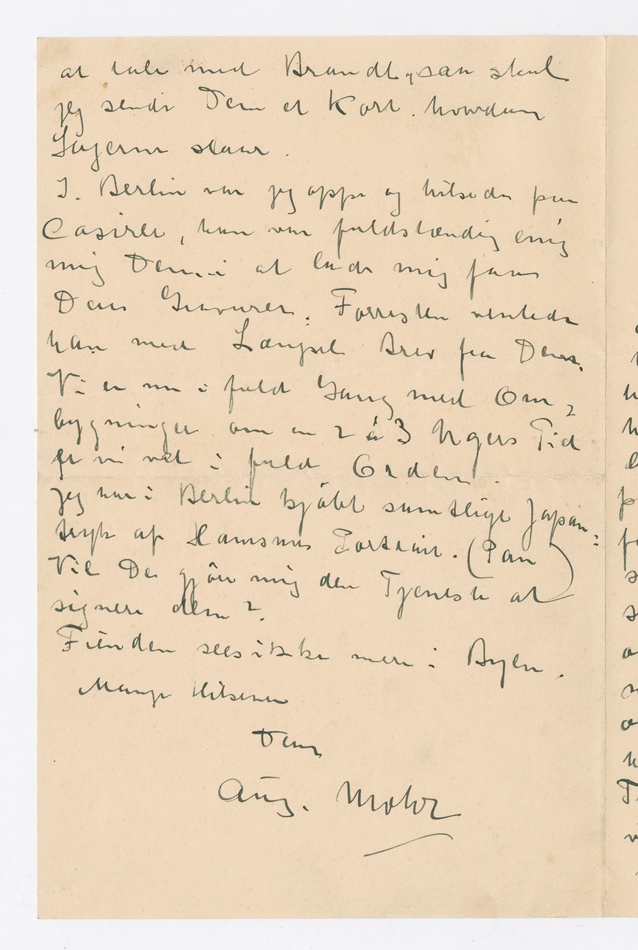 at tale med Brandt, saa skal
jeg sende Dem et Kort. hvordan
Sagerne staar.
I. Berlin var jeg oppe og hilsede paa
Casirer, han var fuldstændig enig
mig Dem i at lade mig faa
Deres Gravurer. Forresten ventede
han med Længsel Brev fra Dem.
Vi er nu i fuld Gang med Om-
bygninger om en 2 à 3 Ugers Tid
er vi vel i fuld Orden.
jeg har i Berlin kjøbt samtlige Japan-
tryk af Hamsuns Portrait. (Pan)
Vil De gjøre mig den Tjeneste at
signere dem?
Fienden sees ikke mere i Byen.
Mange Hilsener
Deres
Aug. Mohr